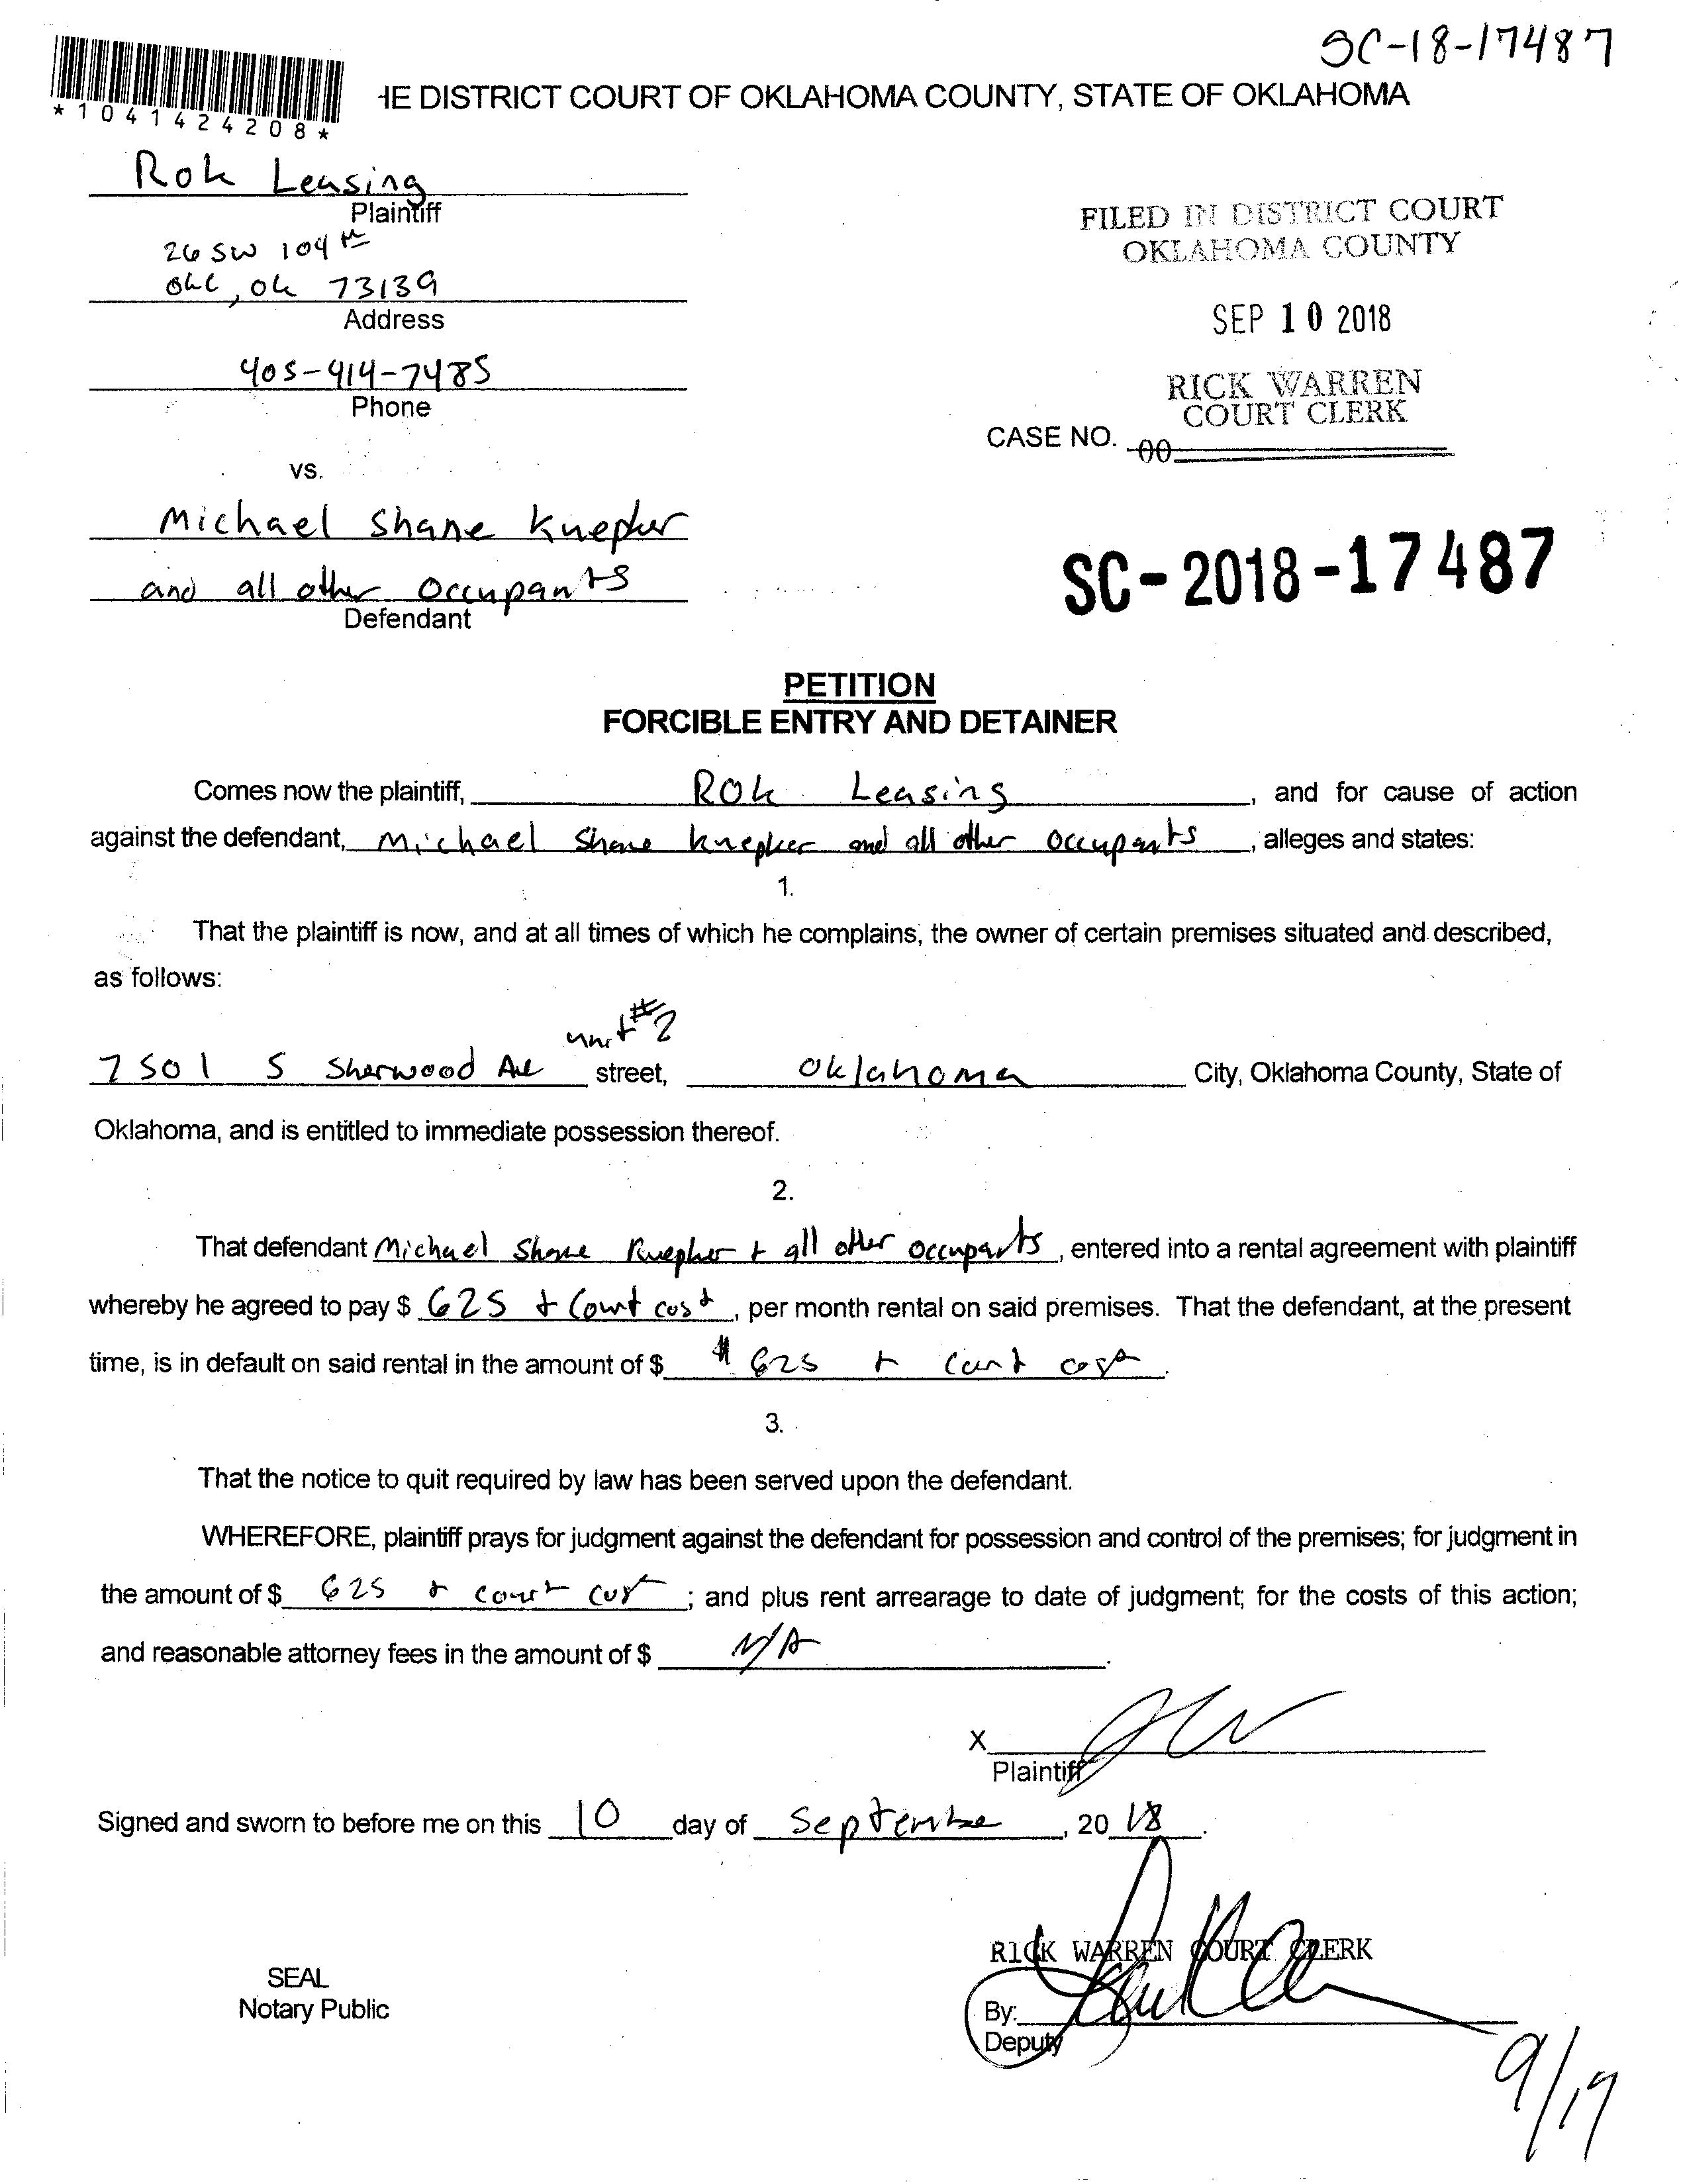 SC-18-17487
*1041424208*
IE DISTRICT COURT OF OKLAHOMA COUNTY, STATE OF OKLAHOMA
Rok Leasing
Plaintiff
26 SW 104th
OKC, OK 73139
Address
405-414-7485
Phone
FILED IN DISTRICT COURT
OKLAHOMA COUNTY
SEP 10 2018
RICK WARREN
COURT CLERK
CASE NO. 00
vs.
Michael Shane Knepker
and all other occupants
Defendant
SC-2018-17487
PETITION
FORCIBLE ENTRY AND DETAINER
Comes now the plaintiff, ROK Leasing, and for cause of action
against the defendant, Michael Shane Knepker and all other occupants, alleges and states:
1.
That the plaintiff is now, and at all times of which he complains, the owner of certain premises situated and described,
as follows:
unit #2
7501 S Sherwood Ave street, Oklahoma City, Oklahoma County, State of
Oklahoma, and is entitled to immediate possession thereof.
2.
That defendant Michael Shane Knepker + all other occupants, entered into a rental agreement with plaintiff
whereby he agreed to pay $ 625 + Court cost, per month rental on said premises. That the defendant, at the present
time, is in default on said rental in the amount of $ $625 + Court cost.
3.
That the notice to quit required by law has been served upon the defendant.
WHEREFORE, plaintiff prays for judgment against the defendant for possession and control of the premises; for judgment in
the amount of $ 625 + court cost; and plus rent arrearage to date of judgment; for the costs of this action;
and reasonable attorney fees in the amount of $ N/A.
X
Plaintiff
Signed and sworn to before me on this 10 day of September, 2018.
RICK WARREN COURT CLERK
SEAL
Notary Public
By:
Deputy
9/19